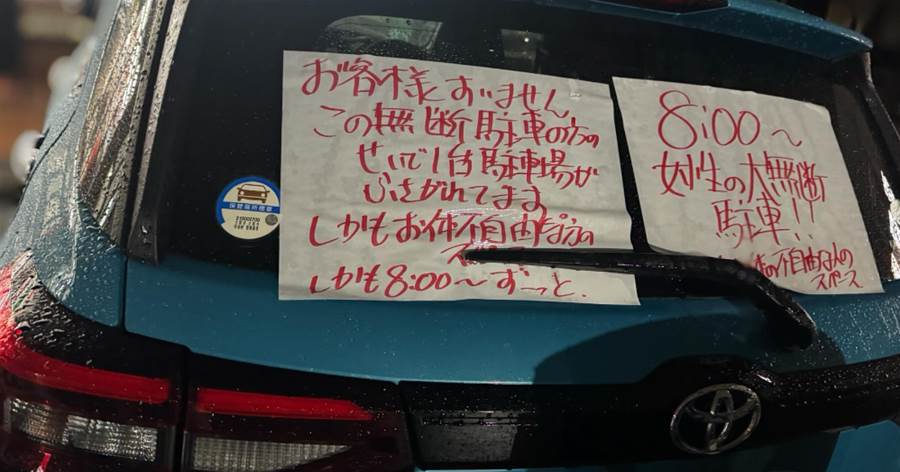 お客様すいません
この無断駐車の方の
せいで1台駐車場が
ふさがれてます
しかもお体不自由な方の
しかも8:00〜ずーっと.
8:00〜
女性の人無断
駐車!!
体の不自由な人の
スペース
保管場所標章